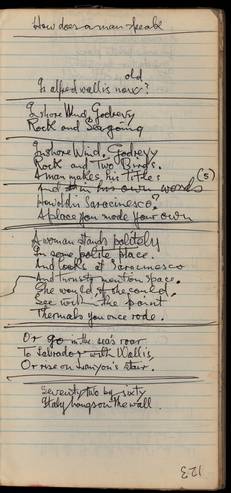 How does a man speak
old
Is alfred wallis now?
Inshore Wind, Godrevy
Rock and Seagoing
Inshore Wind, Godrevy
Rock and Two Birds.
A man makes his Titles
And in his own words (5)
How old is Saracinesco?
A place you made your own
A woman stands politely
In some polite place.
And looks at Saracinesco
And mention space.
She would if she could
See with the point
Thermals you once rode.
Or go in the sea's roar
To Labrador with Wallis,
Or rise on Lanyon's stair.
Seventy two by sixty
Italy hangs on the wall.
123